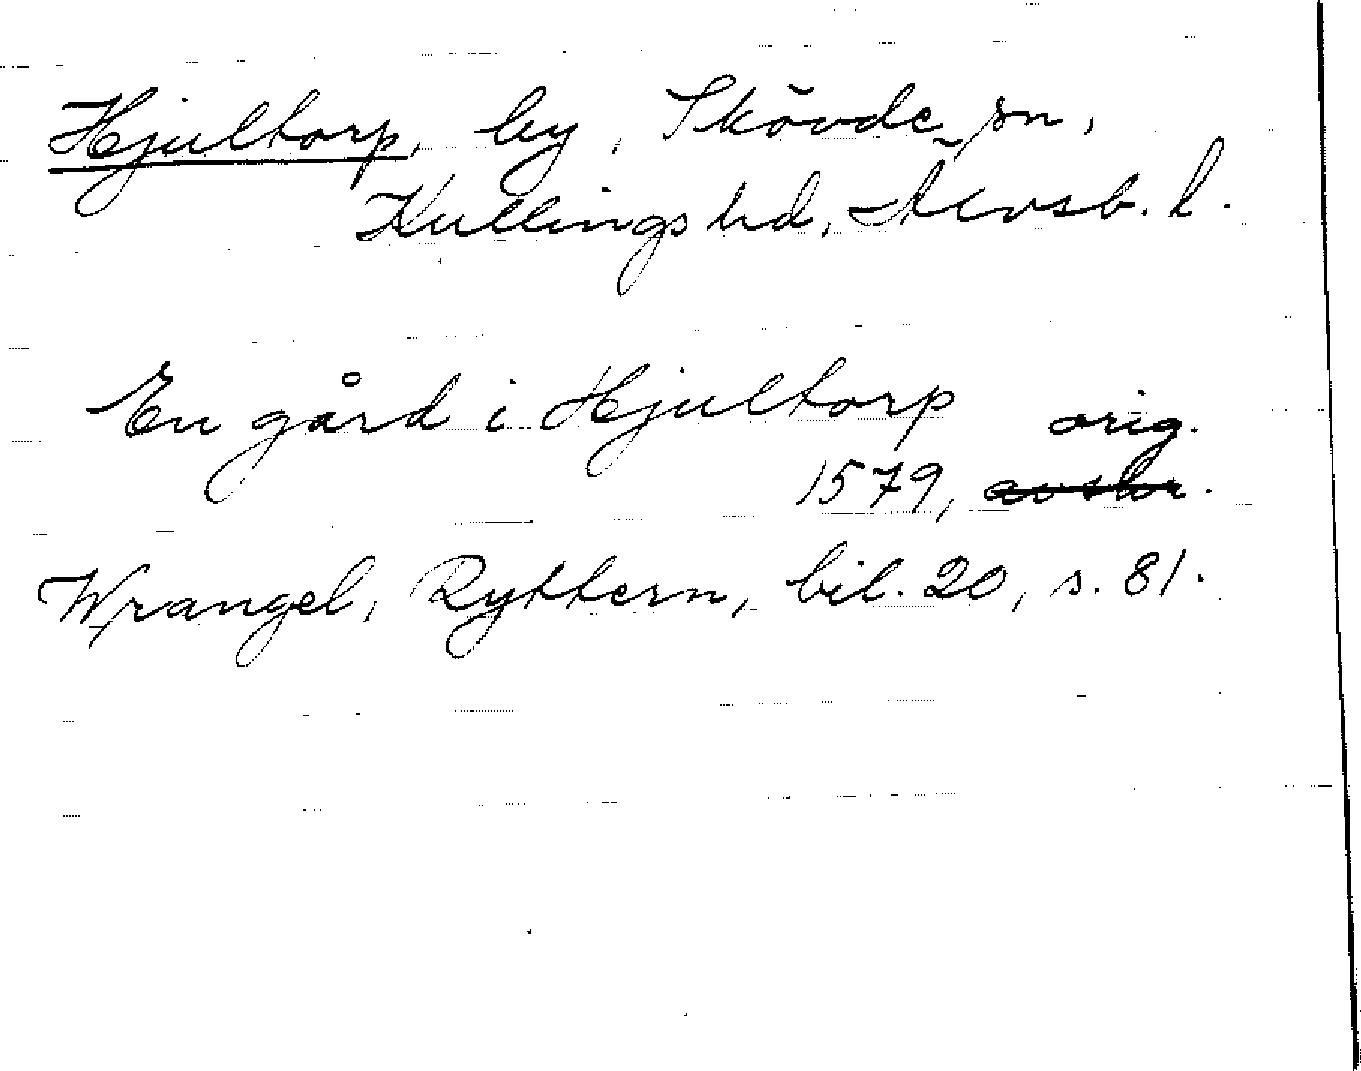 Hjultorp, by, Skövde sn,
Kullings hd, Älvsb. l.
En gård i Hjultorp orig.
1579, avskr.
Wrangel, Ryttern, bil. 20, s. 81.